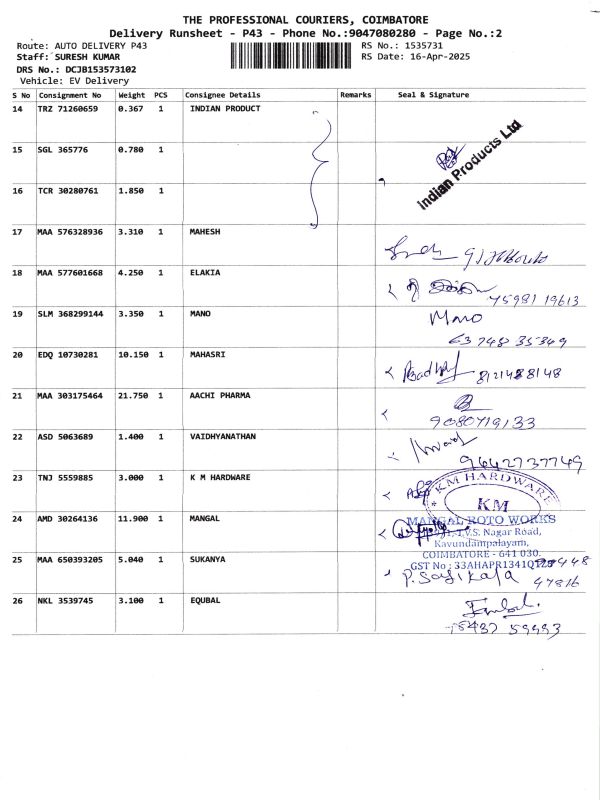 THE PROFESSIONAL COURIERS, COIMBATORE
Delivery Runsheet - P43 - Phone No.:9047080280 - Page No.:2
Route: AUTO DELIVERY P43 RS No.: 1535731
Staff: SURESH KUMAR RS Date: 16-Apr-2025
DRS No.: DCJB153573102
Vehicle: EV Delivery
S No Consignment No Weight PCS Consignee Details Remarks Seal & Signature
14 TRZ 71260659 0.367 1 INDIAN PRODUCT
Indian Products Ltd
15 SGL 365776 0.780 1
16 TCR 30280761 1.850 1
17 MAA 576328936 3.310 1 MAHESH
18 MAA 577601668 4.250 1 ELAKIA
75981 19613
19 SLM 368299144 3.350 1 MANO
Mano
63748 35349
20 EDQ 10730281 10.150 1 MAHASRI
8121488148
21 MAA 303175464 21.750 1 AACHI PHARMA
9080719133
22 ASD 5063689 1.400 1 VAIDHYANATHAN
9442737749
23 TNJ 5559885 3.000 1 K M HARDWARE
KM HARDWARE
KM
24 AMD 30264136 11.900 1 MANGAL
MANGAL ROTO WORKS
T.V.S. Nagar Road,
Kavundampalayam,
COIMBATORE - 641 030.
25 MAA 650393205 5.040 1 SUKANYA
GST No : 33AHAPR1341Q
P. Sasikala
47816
26 NKL 3539745 3.100 1 EQUBAL